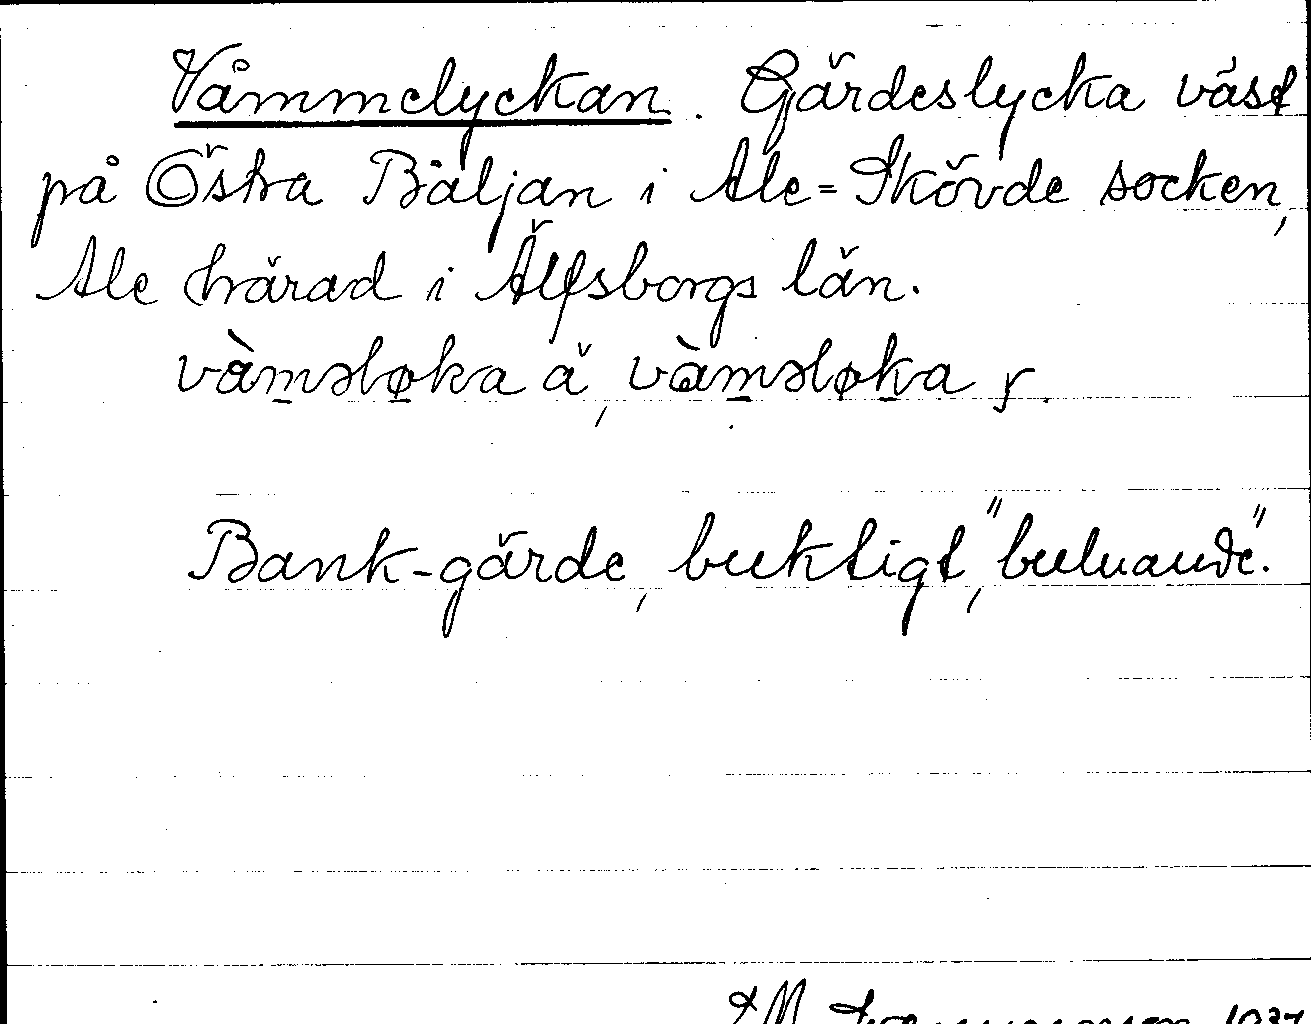 Våmmelyckan. Gärdeslycka väst
på Östra Båljan i Ale-Skövde socken,
Ale härad i Älfsborgs län.
vàmsləka ä, vàmsləka r.
Bank-gärde, buktigt, "buluande".
1937